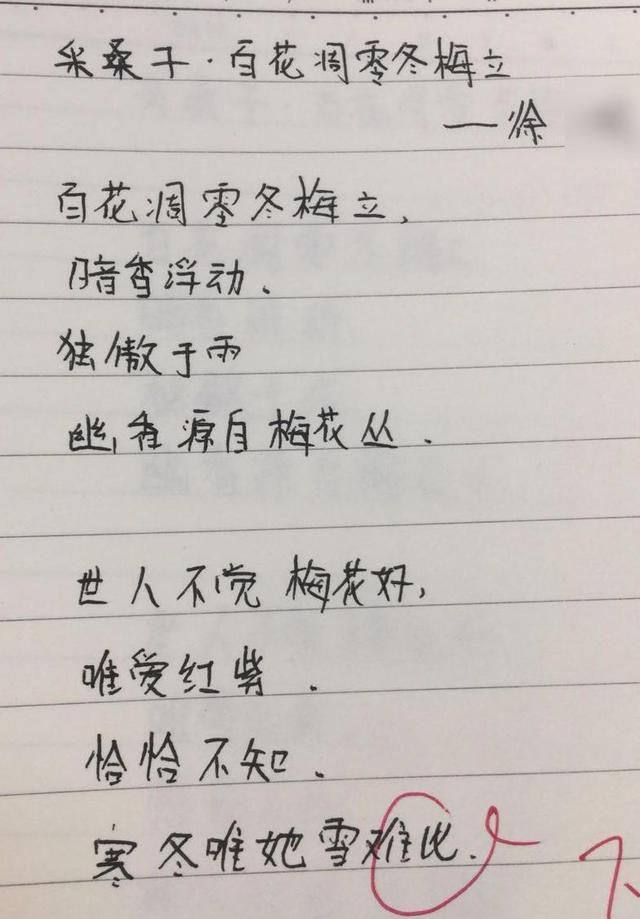 采桑子·百花凋零冬梅立
——徐
百花凋零冬梅立,
暗香浮动.
独傲于雨
幽香源自梅花丛.
世人不觉梅花好,
唯爱红紫.
恰恰不知.
寒冬唯她雪难比.